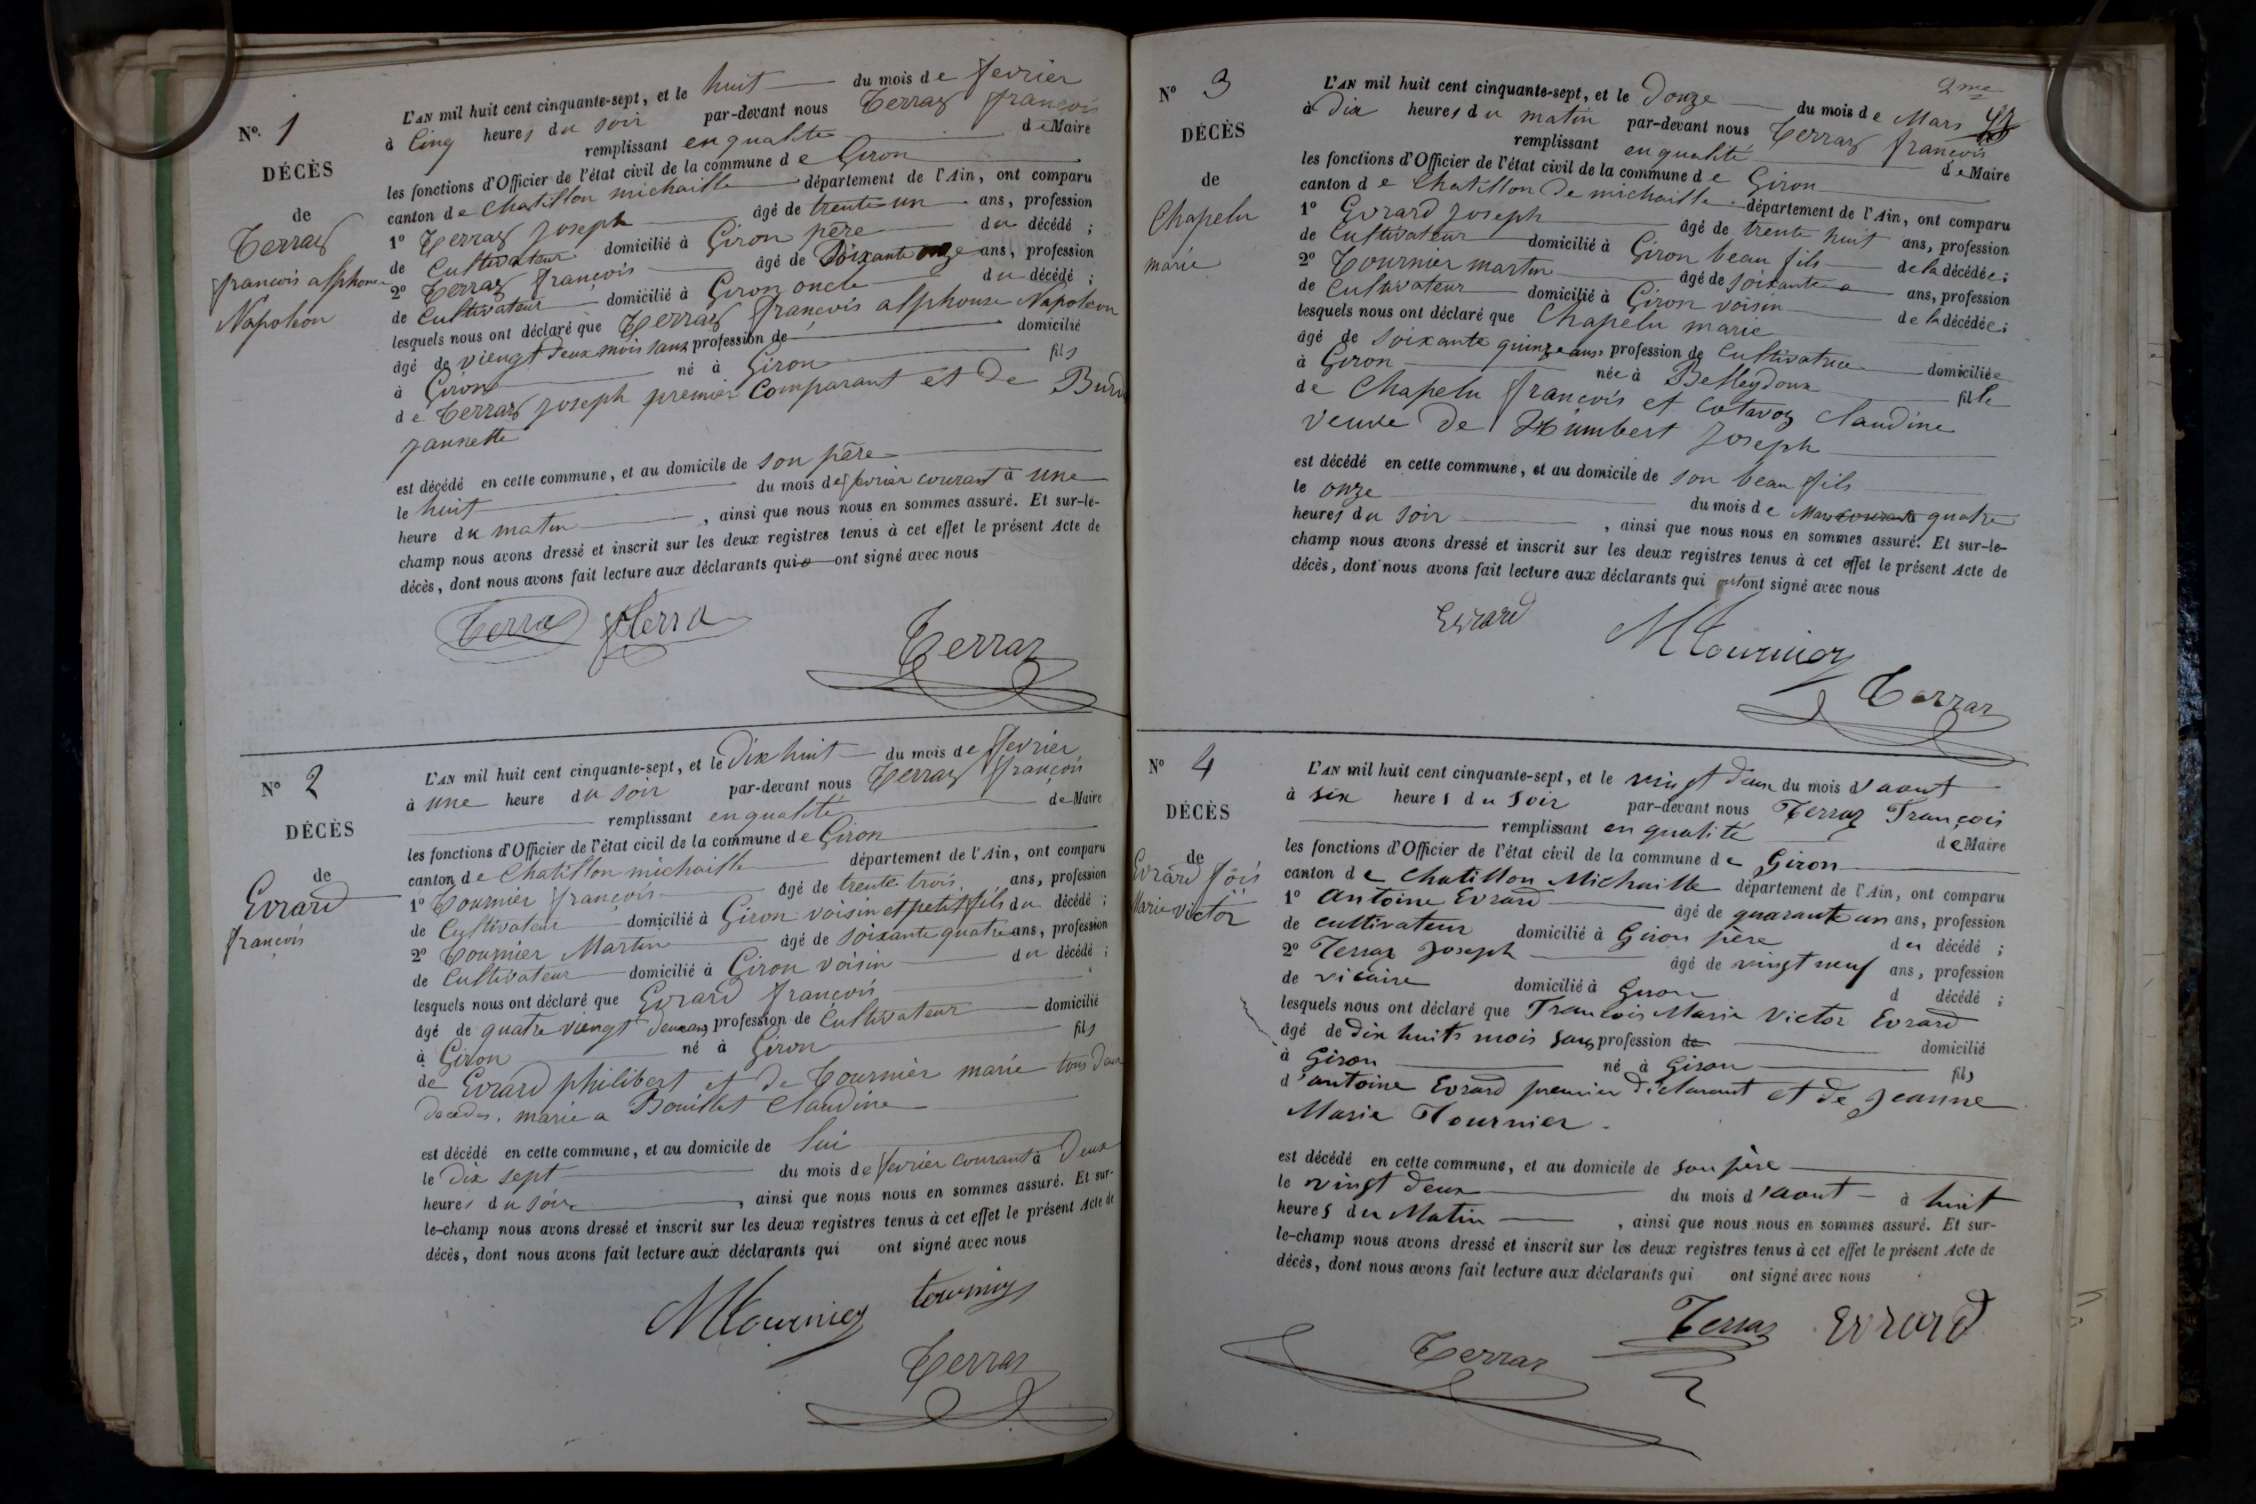 N°. 1
DÉCÈS
de
Terraz
françois alphonse
Napoléon
L'AN mil huit cent cinquante-sept, et le huit du mois de fevrier
à Cinq heures du soir par-devant nous Terraz françois
remplissant en qualité de Maire
les fonctions d'Officier de l'état civil de la commune de Giron
canton de Chatillon michaille département de l'Ain, ont comparu
1° Terraz Joseph âgé de trente un ans, profession
de Cultivateur domicilié à Giron père du décédé ;
2° Terraz françois âgé de Soixante onze ans, profession
de Cultivateur domicilié à Giron oncle du décédé ;
lesquels nous ont déclaré que Terraz françois alphonse Napoléon
âgé de viengt deux mois sans profession de domicilié
à Giron né à Giron fils
de Terraz Joseph premier Comparant et de
Jannette
est décédé en cette commune, et au domicile de son père
le huit du mois de fevrier courant à une
heure du matin , ainsi que nous nous en sommes assuré. Et sur-le-
champ nous avons dressé et inscrit sur les deux registres tenus à cet effet le présent Acte de
décès, dont nous avons fait lecture aux déclarants qui ont signé avec nous
Terraz
Terraz
N° 2
DÉCÈS
de
Evrard
françois
L'AN mil huit cent cinquante-sept, et le Dix huit du mois de fevrier
à une heure du soir par-devant nous Terraz françois
remplissant en qualité de Maire
les fonctions d'Officier de l'état civil de la commune de Giron
canton de Chatillon michaille département de l'Ain, ont comparu
1° Tournier françois âgé de trente trois ans, profession
de Cultivateur domicilié à Giron voisin et petit fils du décédé ;
2° Tournier Martin âgé de soixante quatre ans, profession
de Cultivateur domicilié à Giron voisin du décédé ;
lesquels nous ont déclaré que Evrard françois
âgé de quatre viengt deux ans profession de Cultivateur domicilié
à Giron né à Giron fils
de Evrard philibert et de Tournier marie tous deux
décédés. marié a Bouillet Claudine
est décédé en cette commune, et au domicile de lui
le Dix sept du mois de fevrier courant à Deux
heures du soir , ainsi que nous nous en sommes assuré. Et sur-
le-champ nous avons dressé et inscrit sur les deux registres tenus à cet effet le présent Acte de
décès, dont nous avons fait lecture aux déclarants qui ont signé avec nous
MTournier
Terraz
2me
N° 3
DÉCÈS
de
Chapelu
marie
L'AN mil huit cent cinquante-sept, et le Douze du mois de Mars
à Dix heures du matin par-devant nous Terraz françois
remplissant en qualité de Maire
les fonctions d'Officier de l'état civil de la commune de Giron
canton de Chatillon de michaille département de l'Ain, ont comparu
1° Evrard Joseph âgé de trente huit ans, profession
de Cultivateur domicilié à Giron beau fils de la décédée ;
2° Tournier martin âgé de soixante ans, profession
de Cultivateur domicilié à Giron voisin de la décédée ;
lesquels nous ont déclaré que Chapelu marie
âgé de soixante quinze ans, profession de Cultivatrice domiciliée
à Giron née à Belleydoux fille
de Chapelu françois et Claudine
veuve de Humbert Joseph
est décédé en cette commune, et au domicile de son beau fils
le onze du mois de Mars courant à quatre
heures du soir , ainsi que nous nous en sommes assuré. Et sur-le-
champ nous avons dressé et inscrit sur les deux registres tenus à cet effet le présent Acte de
décès, dont nous avons fait lecture aux déclarants qui ont signé avec nous
Evrard
MTournier
Terraz
N° 4
DÉCÈS
de
Evrard fois
Marie victor
L'AN mil huit cent cinquante-sept, et le vingt deux du mois d'aout
à six heures du soir par-devant nous Terraz François
remplissant en qualité de Maire
les fonctions d'Officier de l'état civil de la commune de Giron
canton de Chatillon Michaille département de l'Ain, ont comparu
1° Antoine Evrard âgé de quarante un ans, profession
de cultivateur domicilié à Giron père du décédé ;
2° Terraz Joseph âgé de vingt neuf ans, profession
de vicaire domicilié à Giron d décédé ;
lesquels nous ont déclaré que François Marie Victor Evrard
âgé de dix huits mois sans profession de domicilié
à Giron né à Giron fils
d'antoine Evrard premier déclarant et de Jeanne
Marie Tournier.
est décédé en cette commune, et au domicile de son père
le vingt deux du mois d'aout à huit
heures du Matin , ainsi que nous nous en sommes assuré. Et sur-
le-champ nous avons dressé et inscrit sur les deux registres tenus à cet effet le présent Acte de
décès, dont nous avons fait lecture aux déclarants qui ont signé avec nous
Terraz Evrard
Terraz